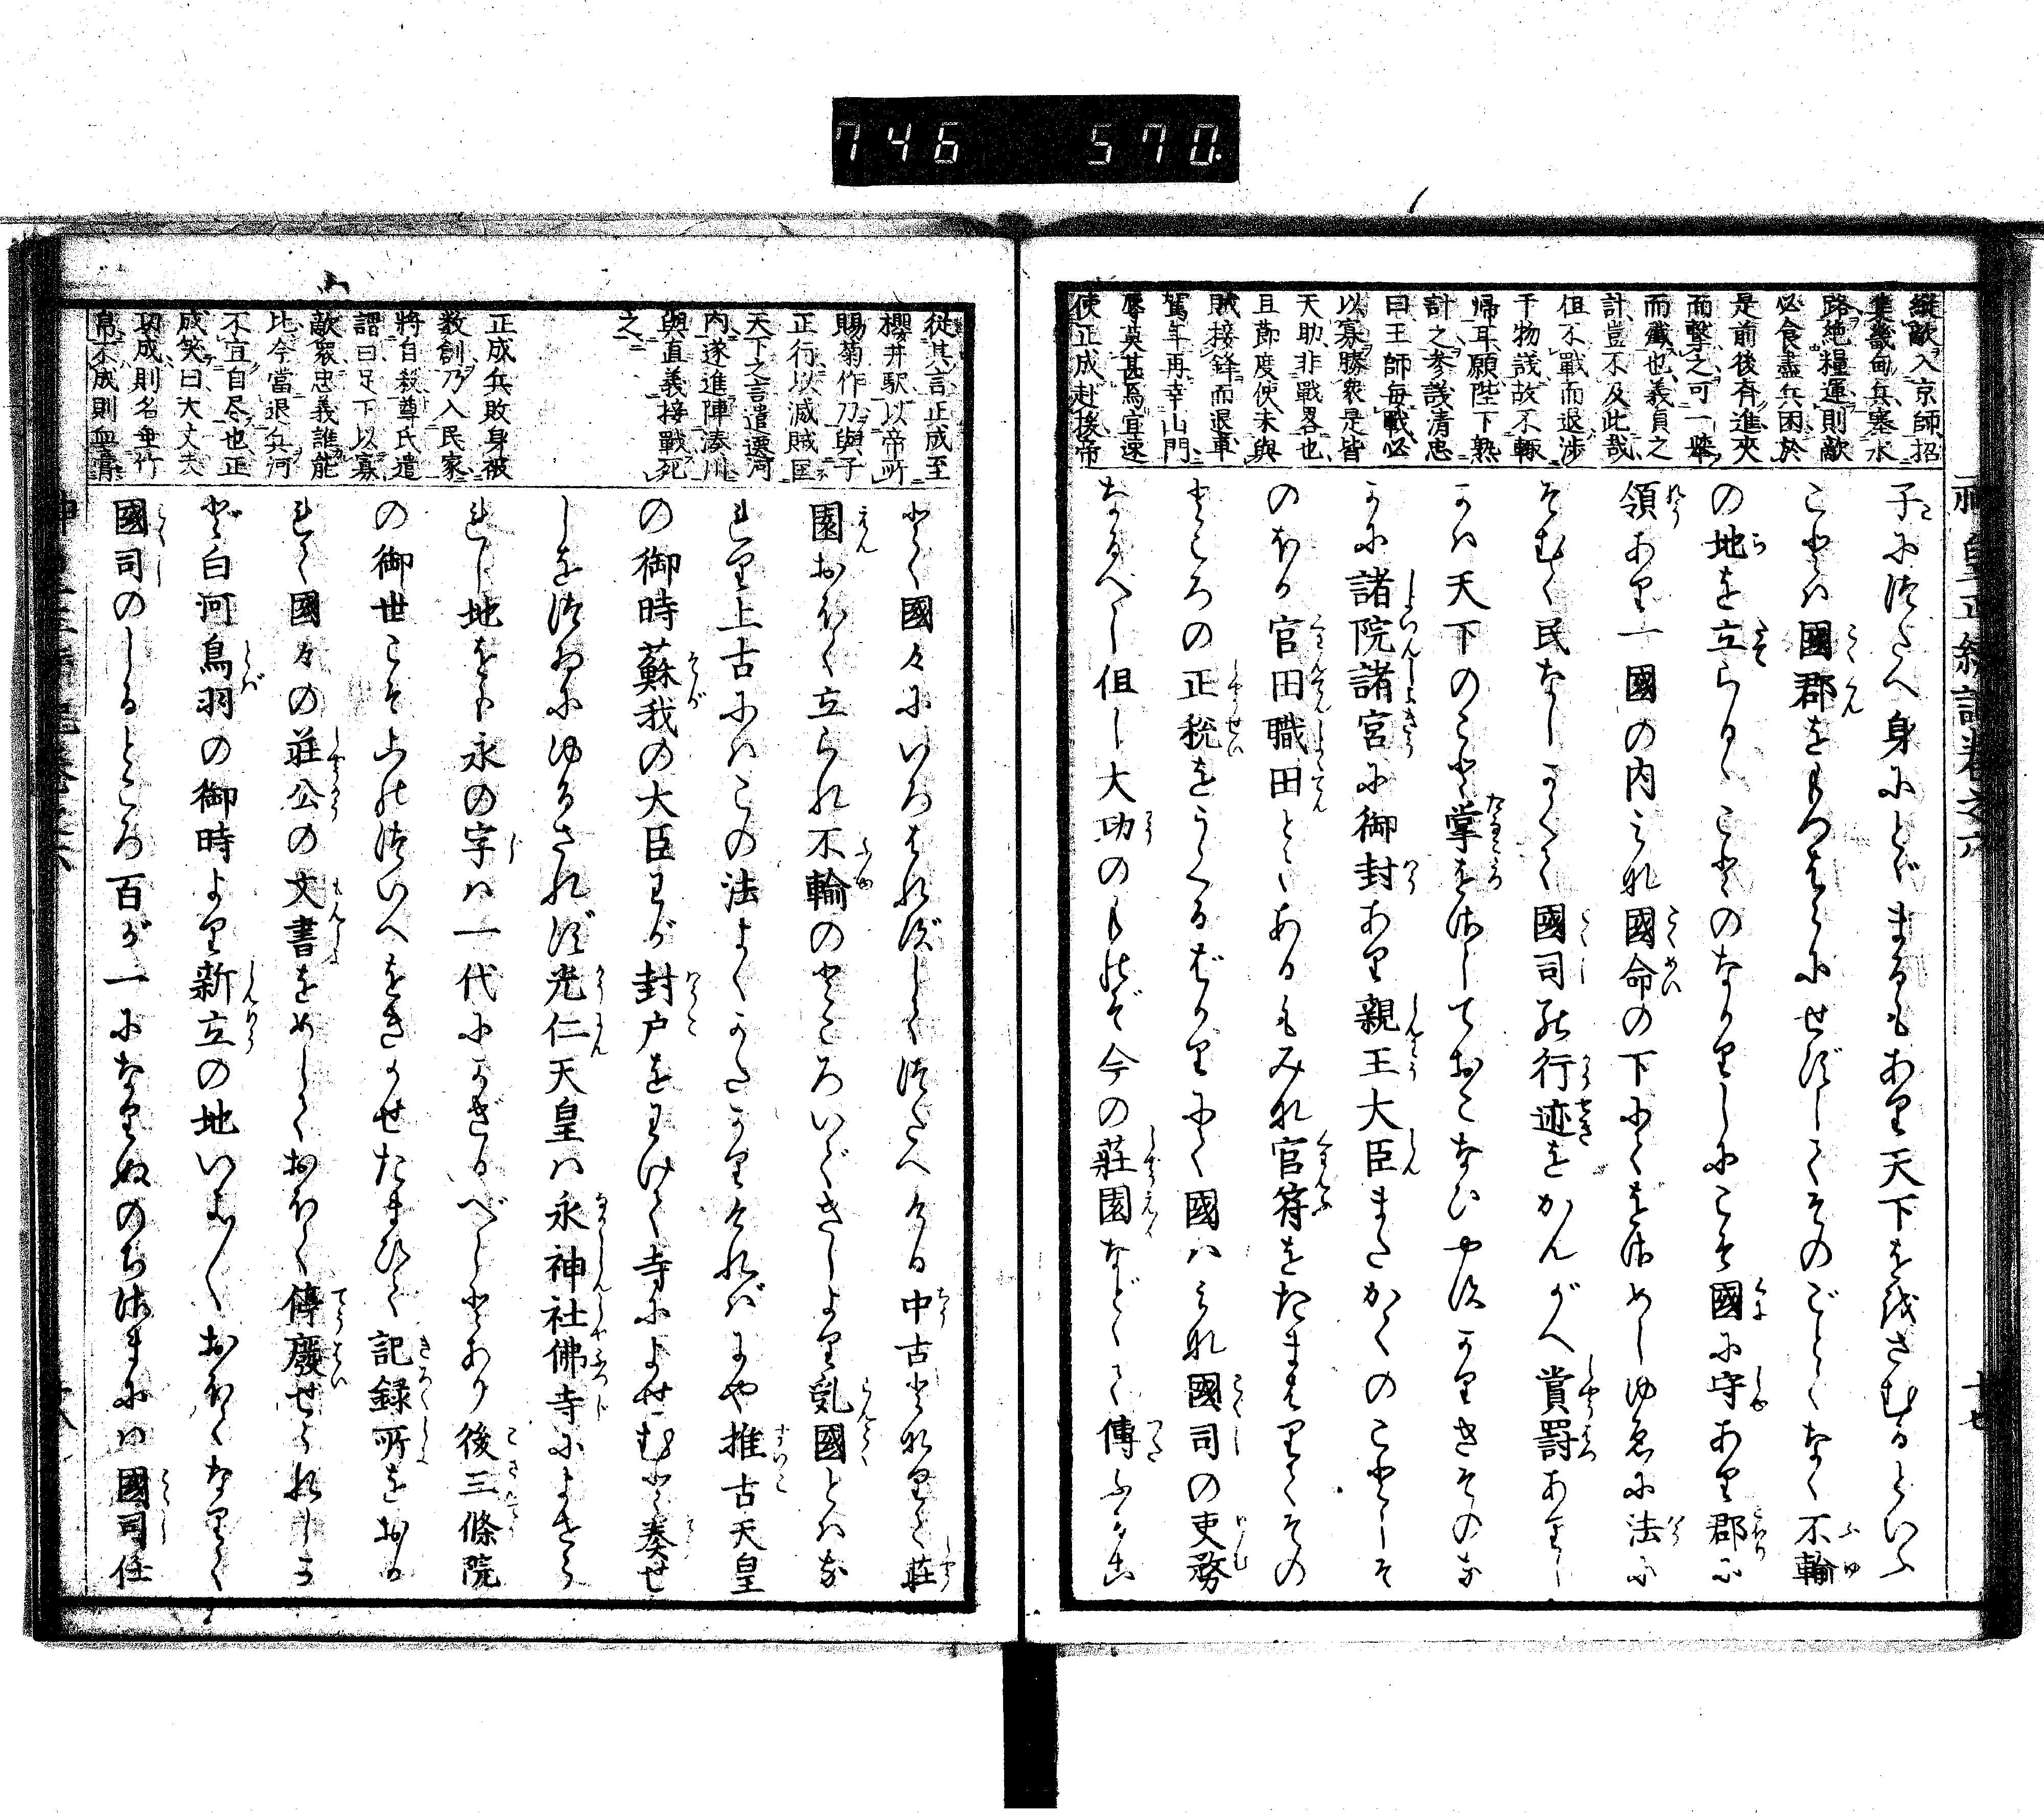 746 570.
縱敵入京師招
集畿甸兵塞水
路絶糧運則敵
必食盡兵困於
是前後有進夾
而擊之可一舉
而殲也義貞之
計豈不及此哉
但不戰而退涉
于物議故不輙
歸耳願陛下熟
計之參議清忠
曰王師每戰必
以寡勝衆是皆
天助非戰畧也
且節度使未與
賊接鋒而退車
駕年再幸山門
辱莫甚焉宜速
使正成赴援帝
神皇正統記卷之六
子につたへ身にとゞまるもあり天下を治さむるといふ
ことハ國郡をもつはらにせずしてそのごとくなく不輸
の地を立らるゝことのなかりしにこそ國に守あり郡に
領あり一國の内みな國命の下にてをさめしゆゑに法に
そむく民なしかくて國司の行迹をかんがへ賞罰ありし
かハ天下のこと掌をさしておこなひやすかりきその
かに諸院諸宮に御封あり親王大臣またかくのことしそ
のほか官田職田とてあるもみな官符をたまハりてその
ところの正税をうくるばかりにて國ハみな國司の吏務
なるへし但し大功のものぞ今の莊園などゝて傳ふかこ
從其言正成至
櫻井駅以帝所
賜菊作刀與子
正行以滅賊匡
天下之言遣還河
内遂進陣湊川
與直義接戰死
之
正成兵敗身被
数創乃入民家
將自殺尊氏遣
謂曰足下以寡
敵衆忠義誰能
比今當退兵河
不宜自尽也正
成笑曰大丈夫
功成則名垂竹
帛不成則血膏
とく國々にいろはれずしてつたへける中古となりて莊
園おほく立られ不輸のところいできしより乱國とハな
れり上古にハこの法よくかたかりけれバにや推古天皇
の御時蘇我の大臣わが封戸をわけて寺によせむと奏せ
しをつゐにゆるされず光仁天皇ハ永神社佛寺によせら
れし地をも永の字ハ一代にかぎるべしとあり後三條院
の御世こそ此つひへをきかせたまひて記録所をおか
れて國々の莊公の文書をめしておほく傳廢せられしか
ど白河鳥羽の御時より新立の地いよ〱おほくなりて
國司のしるところ百が一になりぬのちさまにハ國司任